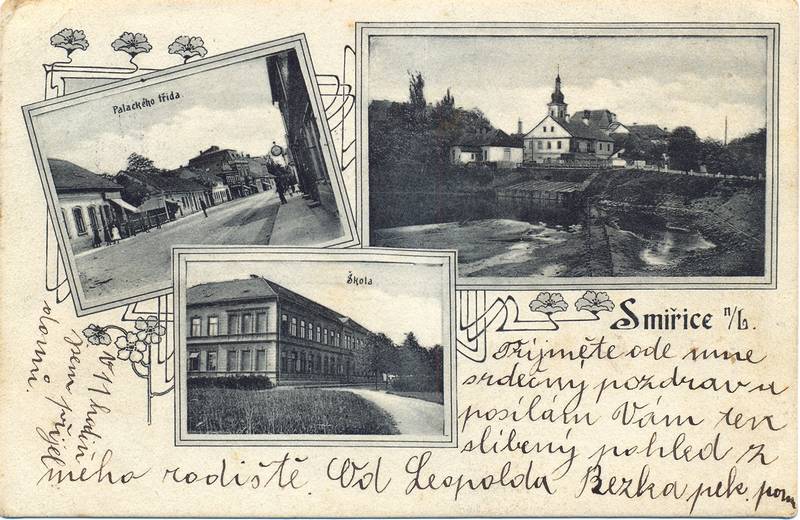 Palackého třída.
Škola
Smiřice n/L.
Přijměte ode mne
srdečný pozdrav a
posílám Vám ten
slíbený pohled z
mého rodiště. Od Leopolda Bezka pek. pom
V 11 hodin
jsem přijel
domů.